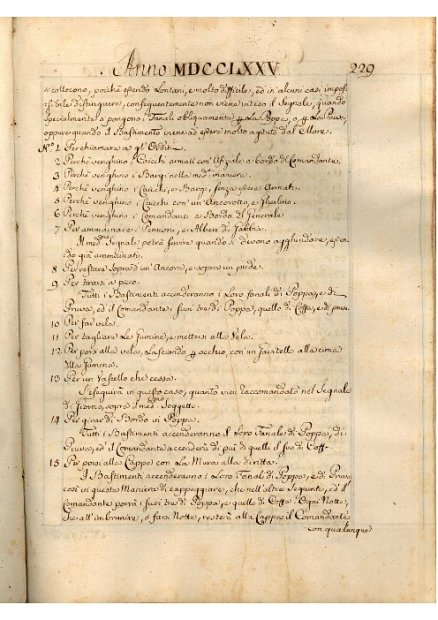 Anno MDCCLXXV 229
collocono, poichè essendo Lontani, e molto difficile, ed in alcuni casi impos-
sibile distinguere, consequentemente non viene inteso il Segnale, quando
specialmente si pongono i Fanali obliquamente La Poppa, o La Prua,
oppure quando il Bastimento viene ad essere molto agitato dal Mare.
N.º 1 Per chiamare a Ordine
2 Perchè venghino i Caicchi armati con Uffiziale a bordo di Comandante.
3 Perchè venghino i Bargi nella med. maniera.
4 Perchè venghino i Caicchi, e Bargi, senza essere Armati.
5 Perchè venghino i Caicchi con un'Ancorotto, e Gherlino.
6 Perchè venghino i Comandanti a Bordo di Generale
7 Per ammainare i Pennoni, e Alberi di Gabbia.
Il med. Segnale potrà servire quando si devono agghindare, essen-
do già ammainati.
8 Per restare sopra d'un'Ancora, e sopra un piede.
9 Per tirarsi a picco.
Tutti i Bastimenti accenderanno i Loro fanali di Poppa, e di
Prua, ed il Comandante i suoi tre di Poppa, quello di Coffa, e di prua.
10 Per far vela.
11 Per tagliare La Gumina, e mettersi alla Vela.
12 Per porsi alla vela, Lasciando occhio, con un galleggiante alla cima
alla Gumena.
13 Per un Vascello che cessa.
Si eseguirà in questo caso, quanto vien raccomandato nel Segnale
di Giorno, sopra il med. Soggetto.
14 Per girar di Bordo in Poppa.
Tutti i Bastimenti accenderanno il Loro Fanale di Poppa, di
Prua, ed il Comandante accenderà di più di quelle il suo di Coff-
15 Per porsi alla Cappa con La Mura alla diritta.
I Bastimenti accenderanno i Loro Fanali di Poppa, e di Prua,
così in questa Maniera di cappeggiare, che nell'altre Sequenti, ed il
Comandante porrà i suoi tre di Poppa, e quello di Coffa. Ogni Notte,
che all'imbrunire, o farsi Notte, resterà alla Cappa il Comandante
con qualunque